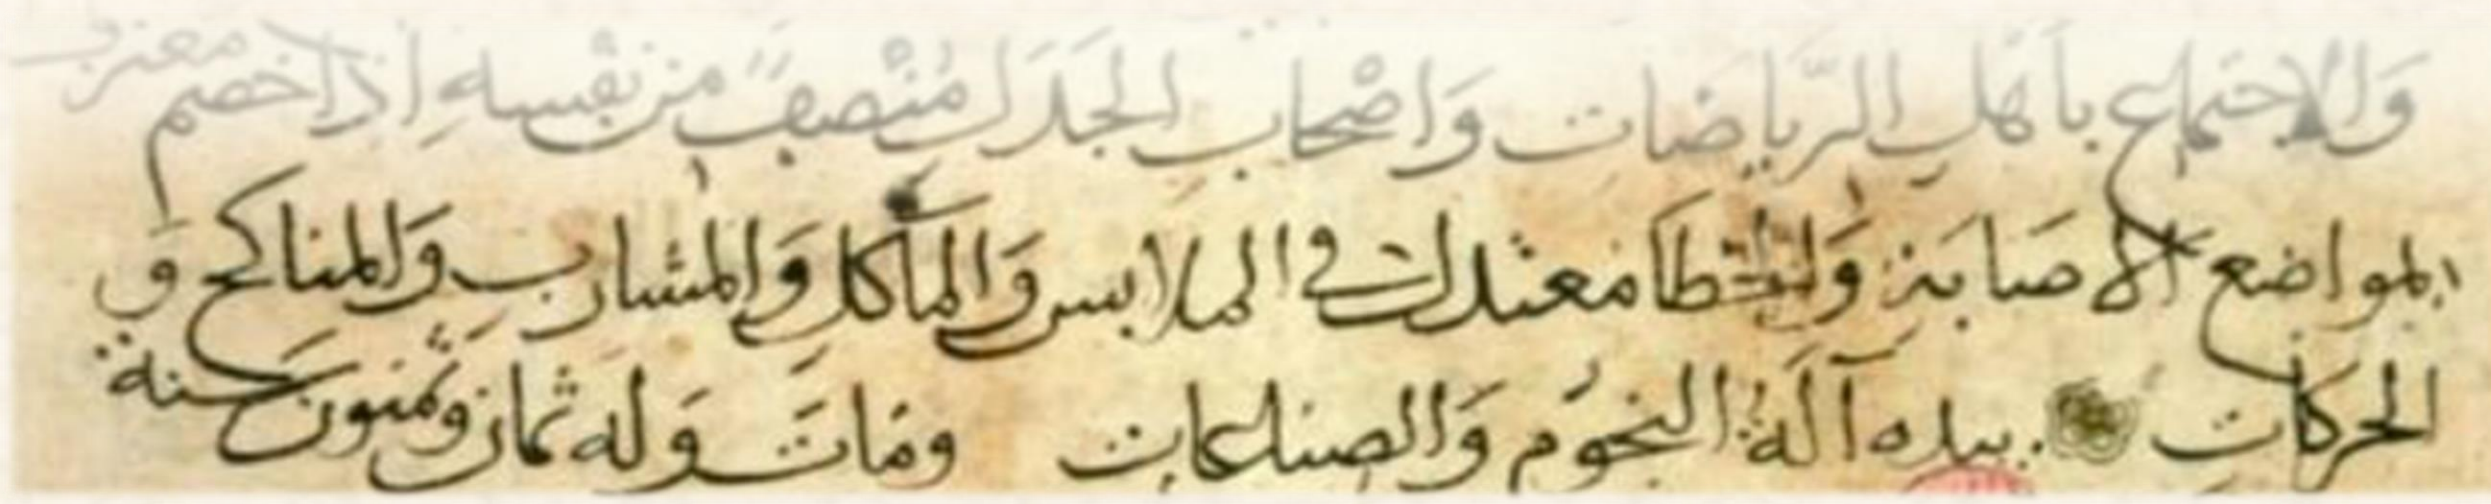 وَالاجتماع بأهل الرّياضات وَاصْحاب الجَدَل مُنْصِفٌ من نفسه اذا خصم معترف
بمواضع الاصَابَة وَالخطا معتدل في الملابس وَالمأكل وَالمشارب وَالمناكح وَ
الحركات بيده آلَة النجوم وَالصناعات ومَات وَله ثمان وثمنون سنة